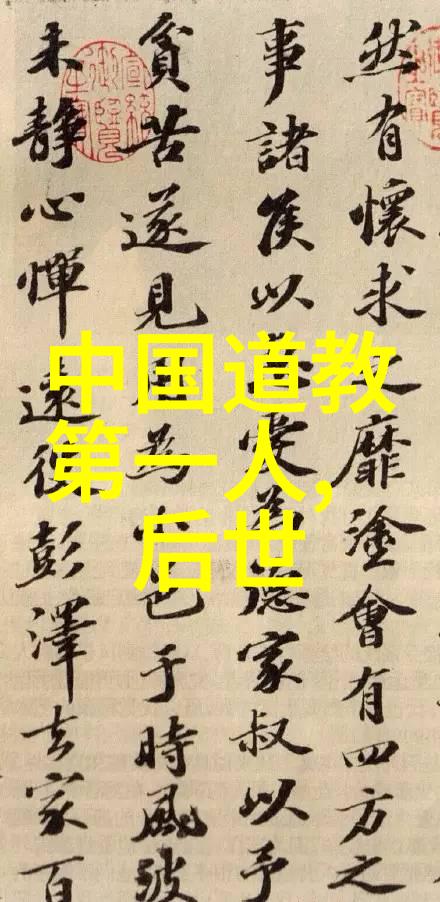 然有懷求之靡塗會有四方之
事諸侯以惠愛為德家叔以予
貧苦遂見用為小邑于時風波
未靜心憚遠役彭澤去家百
中国道教
第一人,
后世